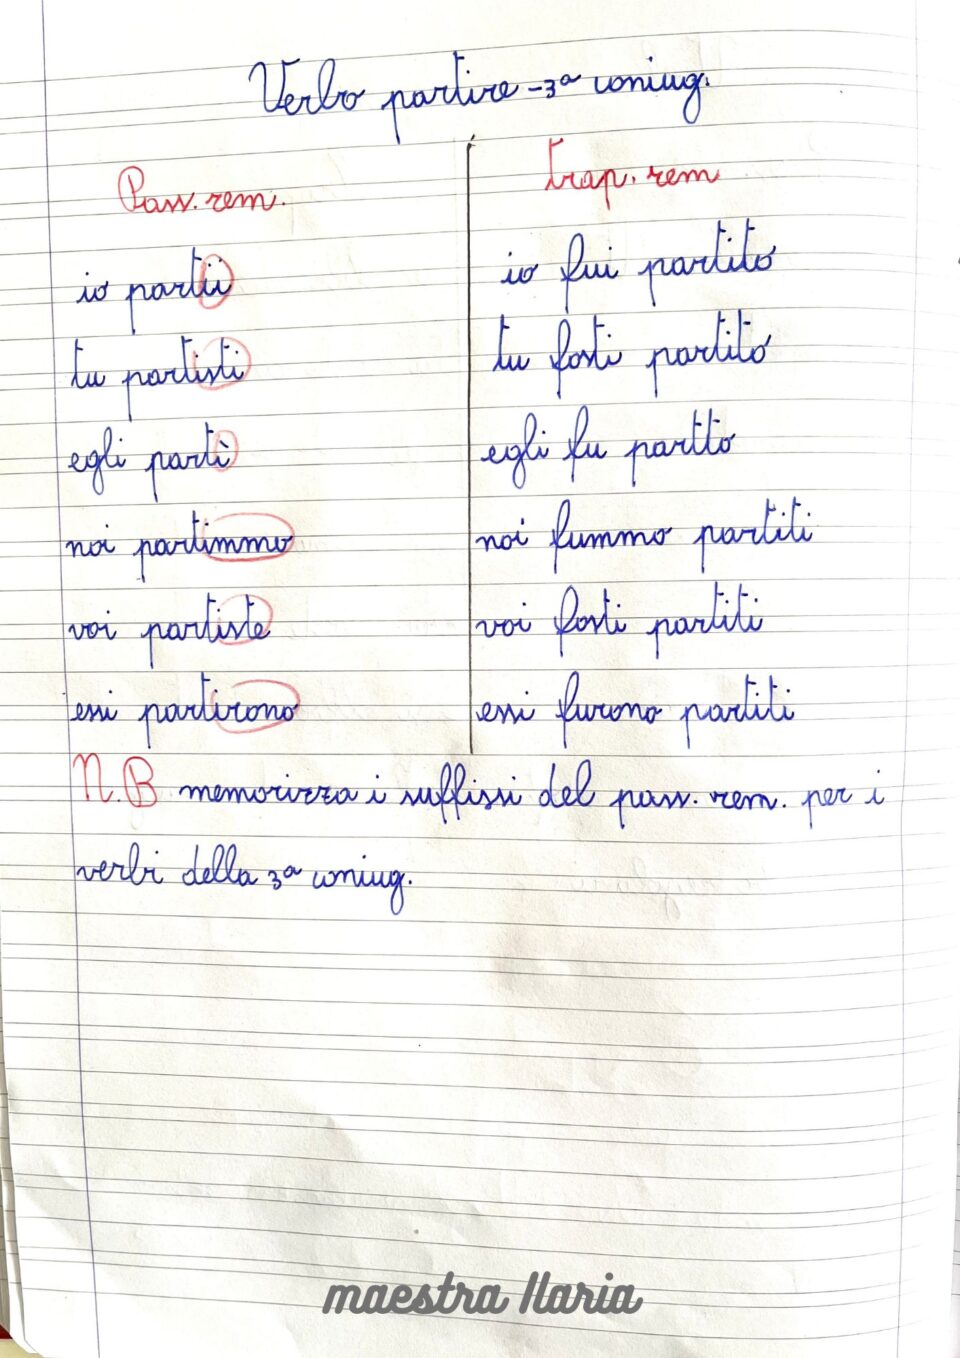 Verbo partire - 3ª coniug.
Pass. rem.
io partii
tu partisti
egli partì
noi partimmo
voi partiste
essi partirono
trap. rem
io fui partito
tu fosti partito
egli fu partto
noi fummo partiti
voi fosti partiti
essi furono partiti
N.B memorizza i suffissi del pass. rem. per i
verbi della 3ª coniug.
maestra Ilaria